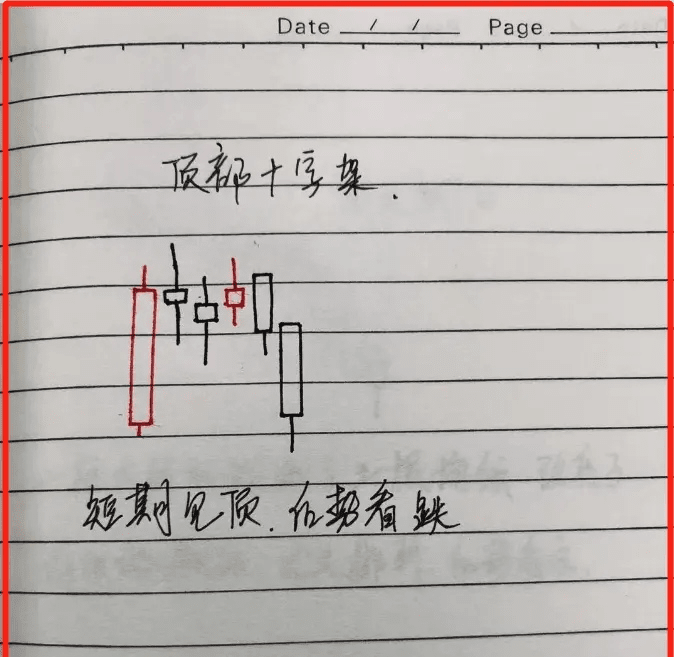 Date / / Page
顶部十字架.
短期见顶.后势看跌